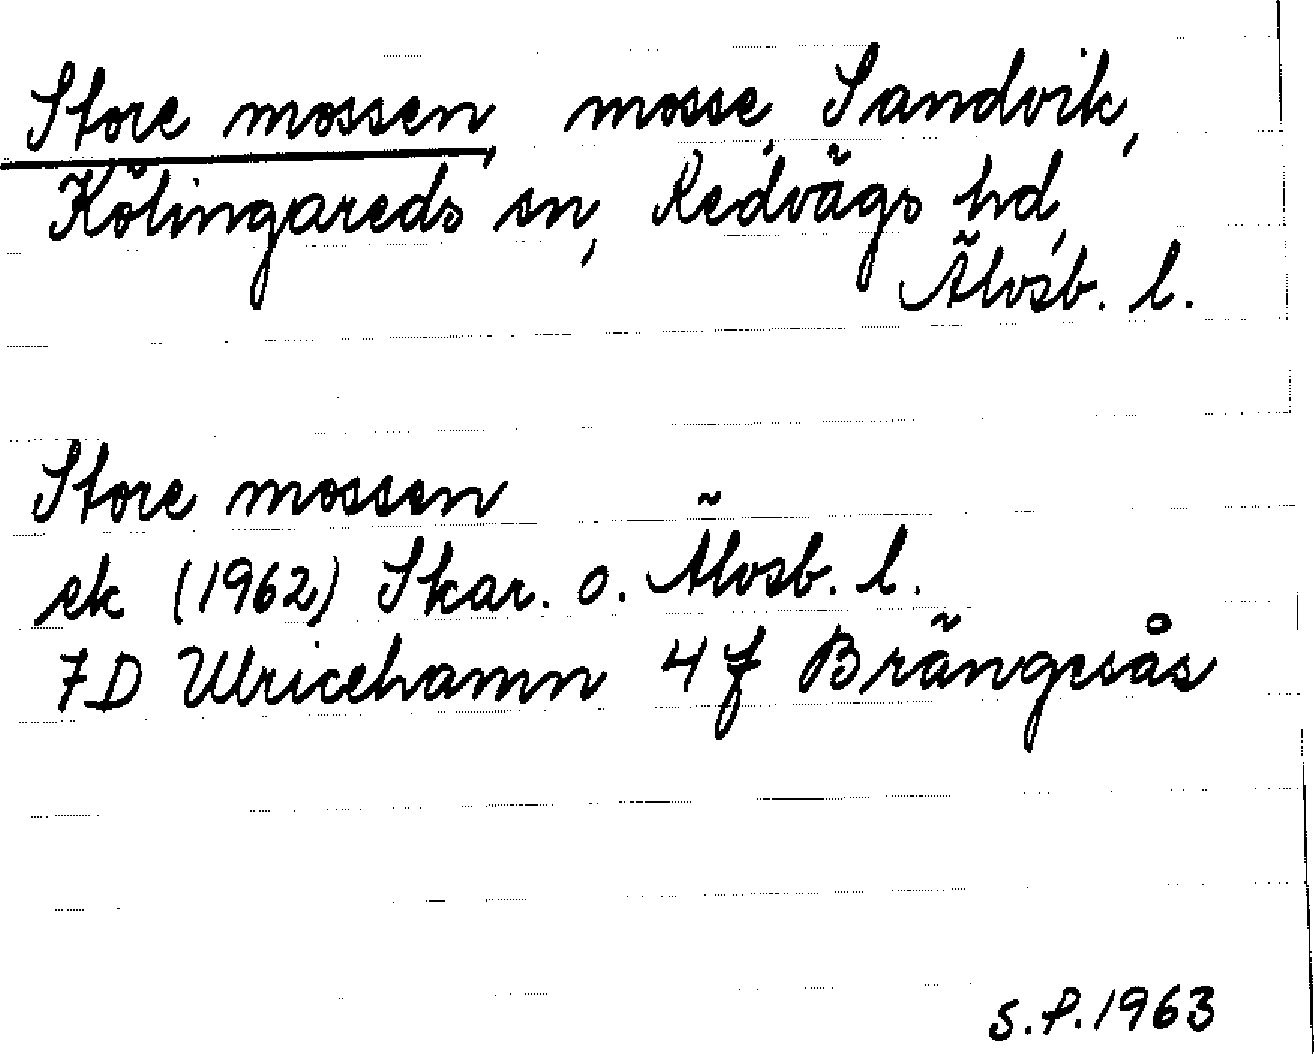 Store mossen, mosse, Sandvik,
Kölingareds sn, Redvägs hd,
Älvsb. l.
Store mossen
ek (1962) Skar. o. Älvsb. l.
7D Ulricehamn 4f Brängesås
S.P. 1963